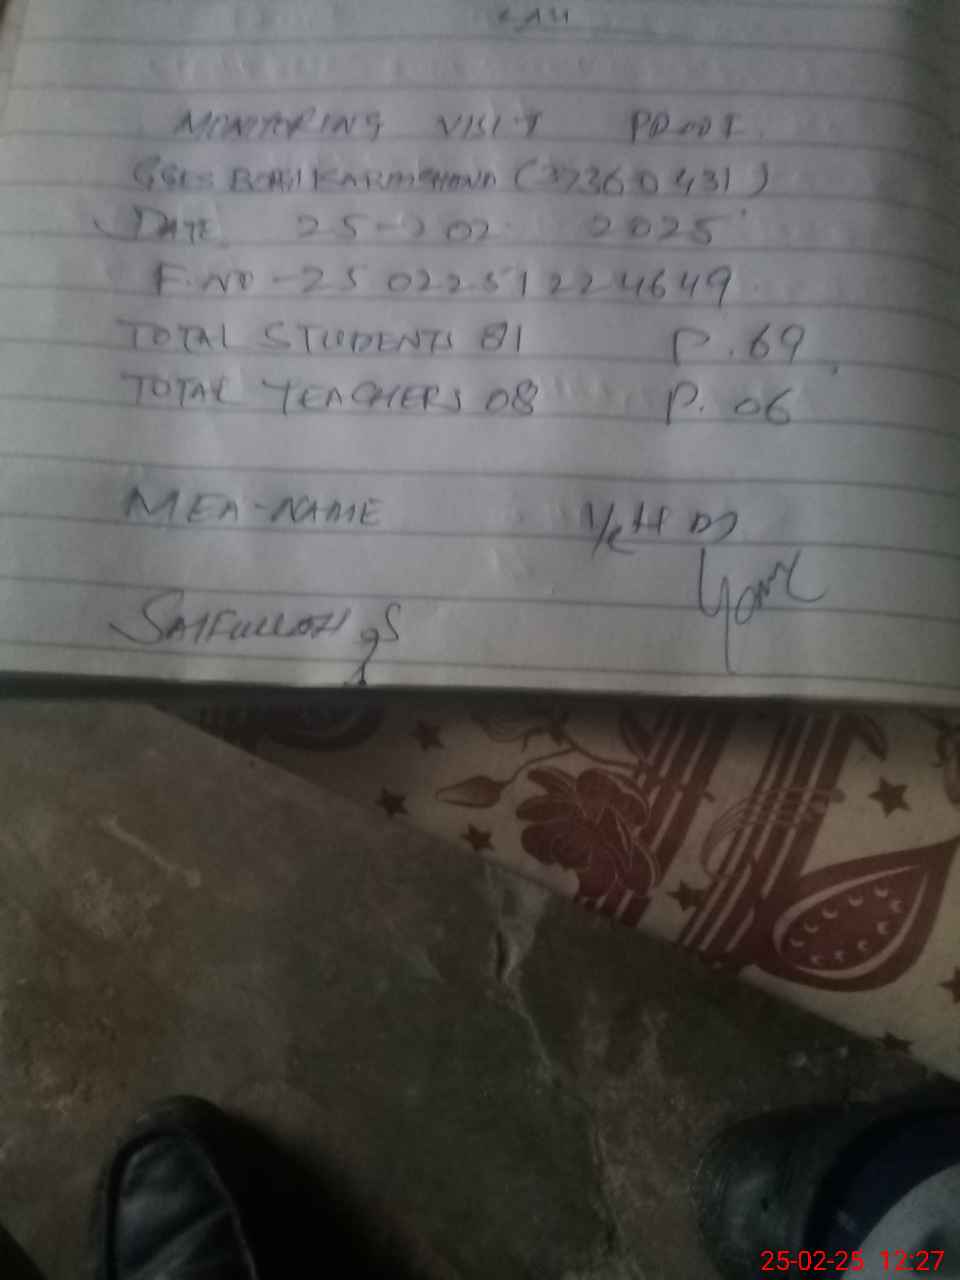 MONITRING VISIT PROOF.
DATE 25-02-2025
F.NO-2502251224649
TOTAL STUDENTS 81 P.69
TOTAL TEACHERS 08 P.06
MEA-NAME I/C H M
SAIFULLAH
25-02-25 12:27